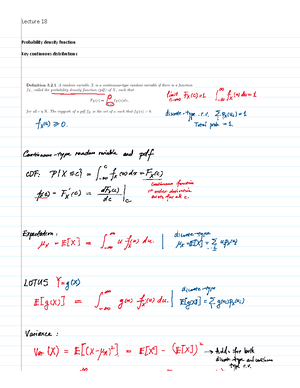 Lecture 18
Probability density function
Key continuous distributions
Definition 3.2.1 A random variable X is a continuous-type random variable if there is a function
f_X, called the probability density function (pdf) of X, such that
F_X(c) = ∫_{-∞}^{c} f_X(u)du,
for all c ∈ R. The support of a pdf f_X is the set of u such that f_X(u) > 0.
limit c→∞ F_X(c) = 1 ∫_{-∞}^{∞} f_X(u) du = 1
f_X(u) ≥ 0.
discrete-type r.v. Σ p_X(u_i) = 1
Total prob = 1.
Continuous-type random variable and pdf
CDF: P{X ≤ c} = ∫_{-∞}^{c} f_X(u) du = F_X(c)
f_X(c) = F_X'(c) = dF_X(c)/dc |_c
Continuous function
1st order derivative
exists for all c.
Expectation:
μ_X = E[X] = ∫_{-∞}^{∞} u f_X(u) du.
discrete-type
μ_X = E[X] = Σ u_i p_X(u_i)
LOTUS Y = g(X)
E[g(X)] = ∫_{-∞}^{∞} g(u) f_X(u) du.
discrete-type
E[g(X)] = Σ g(u_i) p_X(u_i)
Variance:
Var(X) = E[(X-μ_X)²] = E[X²] - (E[X])²
→ for both
discrete type and continuous
type r.v.